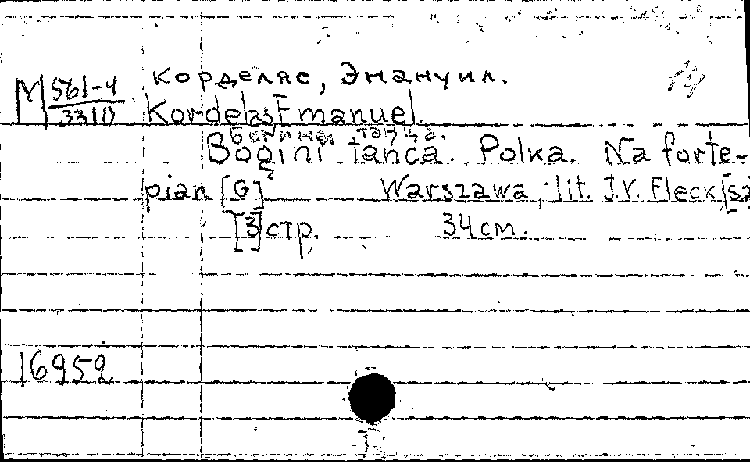 Корделяс, Эмануил.
М 561-4
3310
Kordelas Emanuel.
Богиня танца.
Bogini tańca. Polka. Na forte-
pian [G] Warszawa, lit. J.V. Fleck, [sz
[3] стр. 34 см.
16952